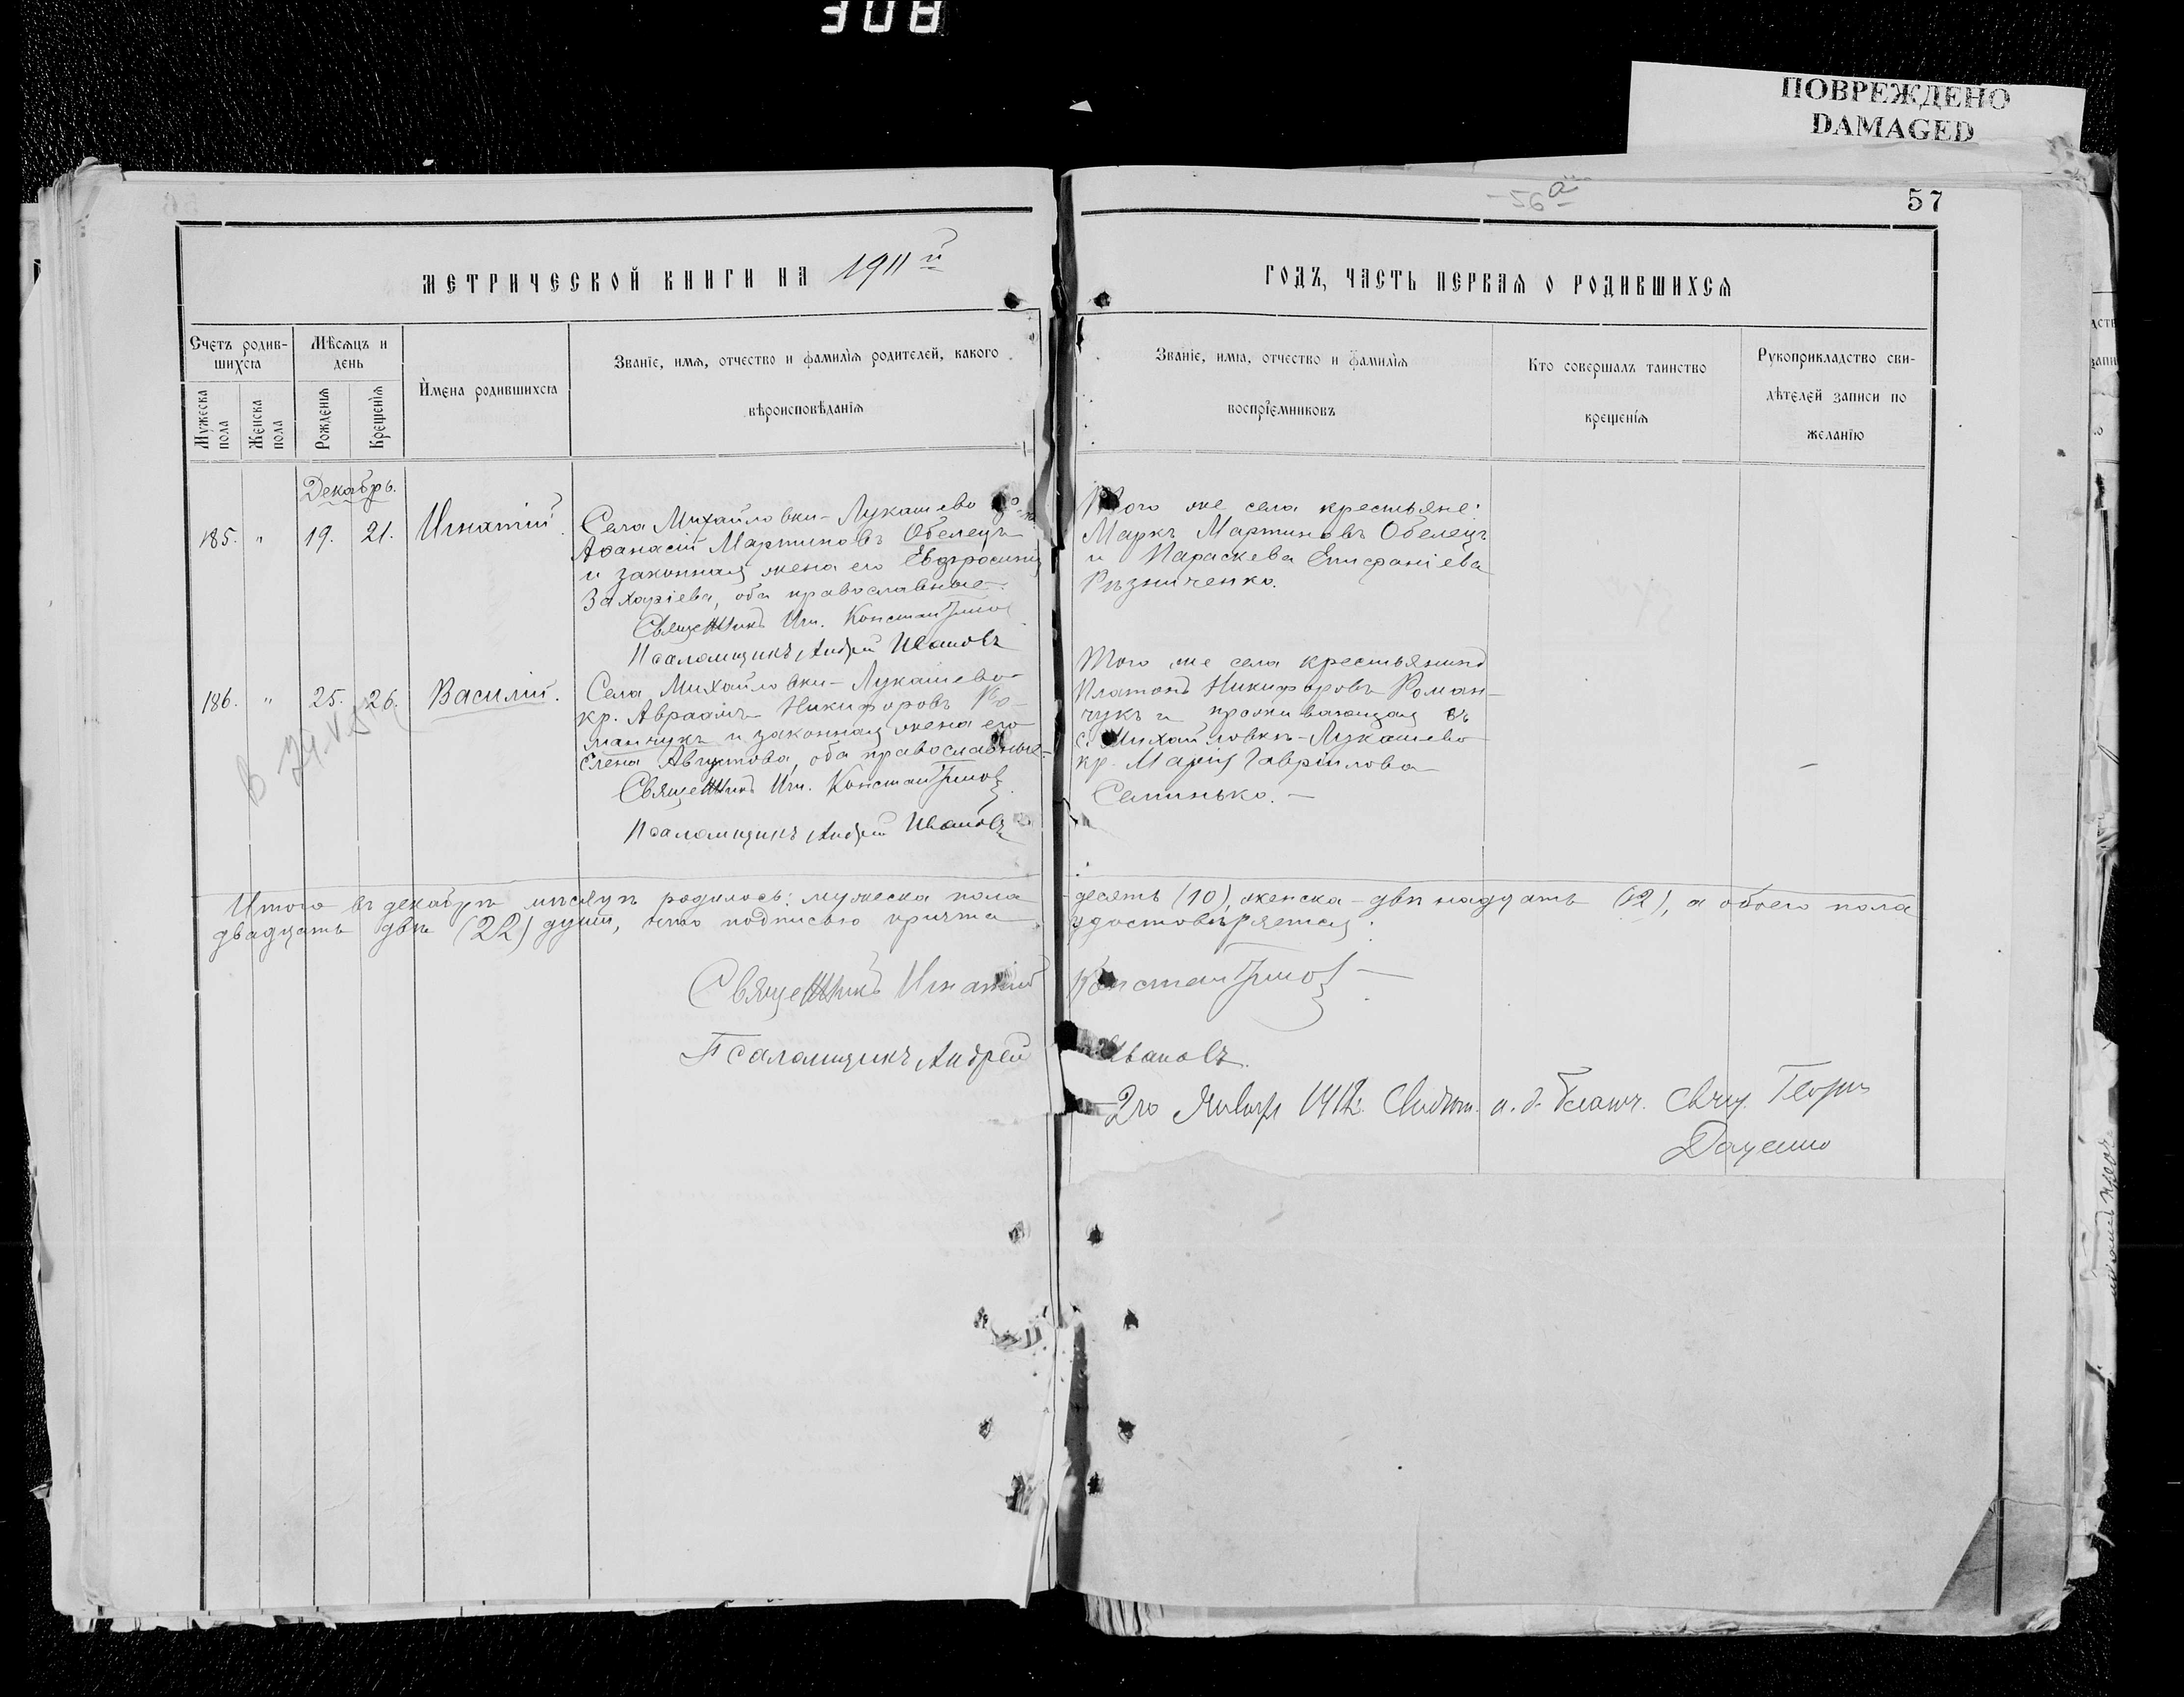 308
ПОВРЕЖДЕНО
DAMAGED
56а
57
МЕТРИЧЕСКОЙ КНИГИ НА 1911й
ГОДЪ, ЧАСТЬ ПЕРВАЯ О РОДИВШИХСЯ
Счетъ родив-
шихся
Мужеска
пола
Женска
пола
Мѣсяцъ и
день
Рожденія
Крещенія
Имена родившихся
Званіе, имя, отчество и фамилія родителей, какого
вѣроисповѣданія
Званіе, имя, отчество и фамилія
воспріемниковъ
Кто совершалъ таинство
крещенія
Рукоприкладство сви-
дѣтелей записи по
желанію
Декабрь.
185. " 19. 21. Игнатій.
Села Михайловки-Лукашево
Аѳанасій Мартиновъ Обелецъ
и законная жена его Евфросинія
Захаріева, оба православные.
Священникъ Игн. Константинов
Псаломщикъ Андрей Ивановъ
Того же села крестьяне:
Маркъ Мартиновъ Обелецъ
и Параскева Епифаніева
Рѣзниченко.
186. " 25. 26. Василій.
Села Михайловки-Лукашево
кр. Авраамъ Никифоровъ Ро-
манчукъ и законная жена его
Елена Августова, оба православные.
Священникъ Игн. Константинов
Псаломщикъ Андрей Ивановъ
Того же села крестьянинъ
Платонъ Никифоровъ Роман-
чукъ и проживающая въ
с. Михайловкѣ-Лукашево
кр. Марія Гавріилова
Семинько.
Итого въ декабрѣ мѣсяцѣ родилось: мужеска пола десять (10), женска - двѣнадцать (12), а обоего пола
двадцать двѣ (22) души, что подписью причта удостовѣряется:
Священникъ Игнатій Константинов
Псаломщикъ Андрей Ивановъ.
2го Января 1912. а. д. Благоч. Свящ. Георгій